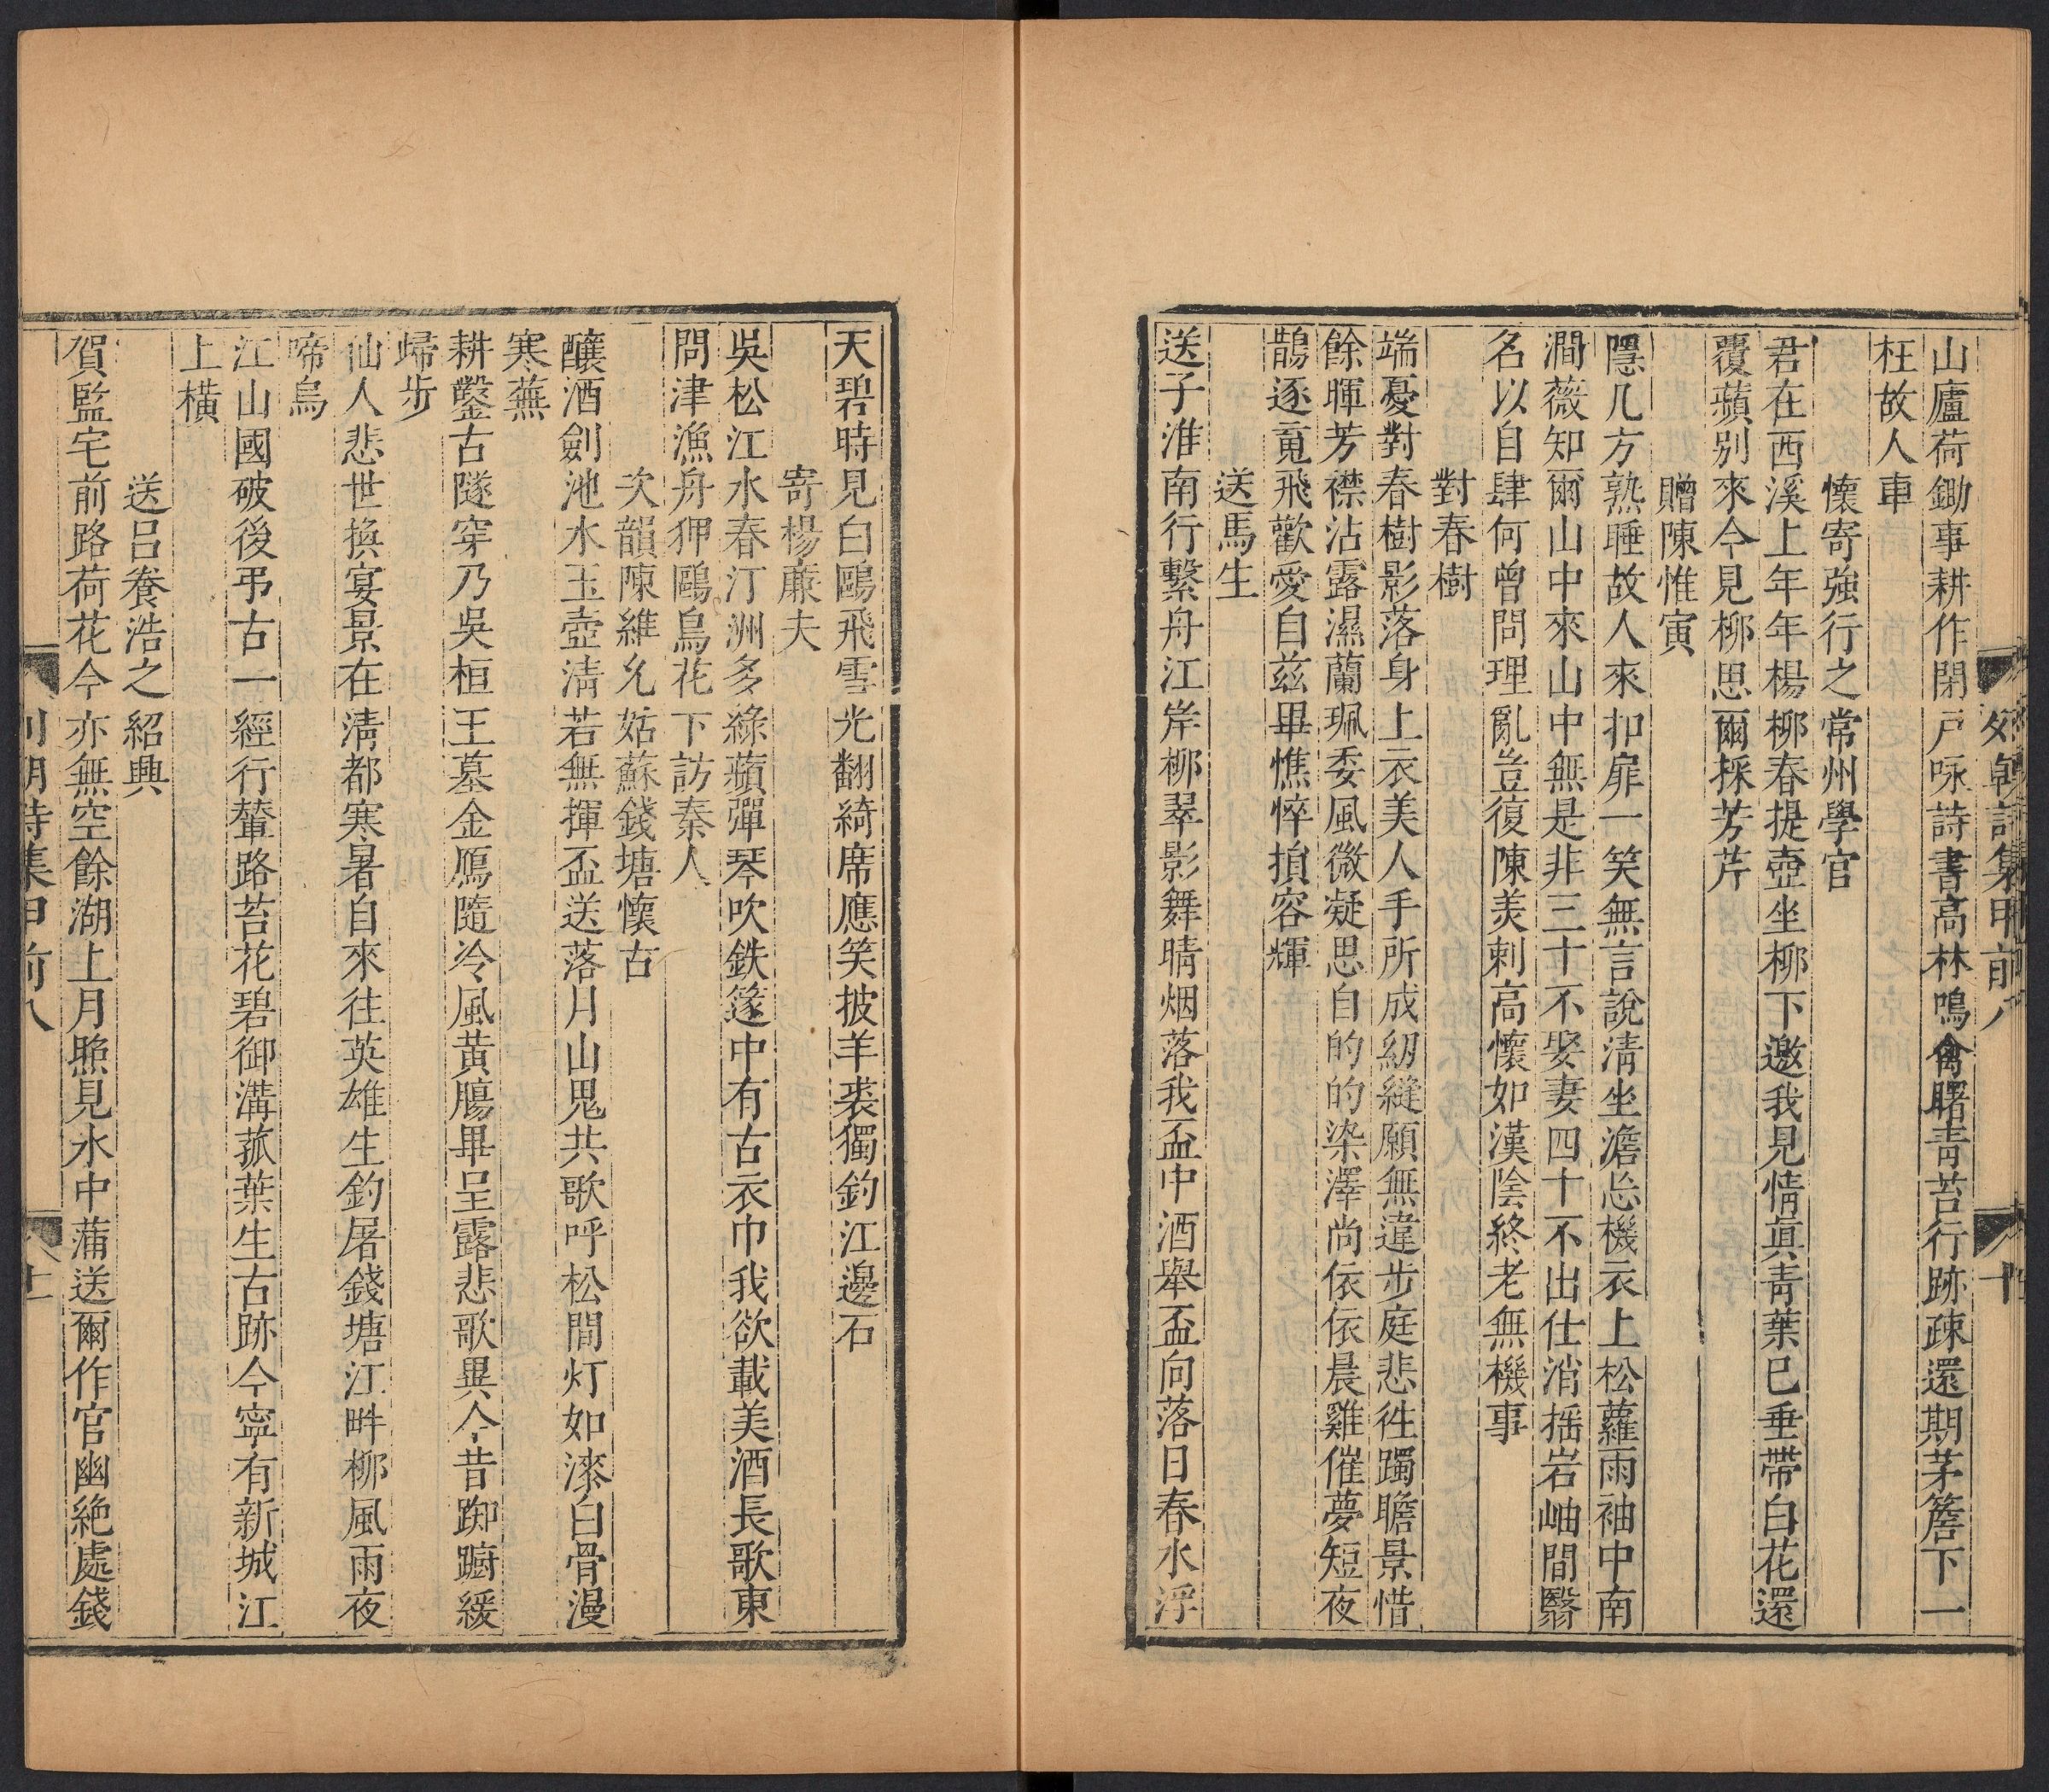 山廬荷鋤事耕作閉戸咏詩書高林鳴禽曙靑苔行跡疎還期茅簷下一
枉故人車
懷寄強行之常州學官
君在西溪上年年楊柳春提壺坐柳下邀我見情眞靑葉巳垂帶白花還
覆蘋别來今見柳思爾採芳芹
贈陳惟寅
隱几方熟睡故人來扣扉一笑無言說淸坐澹忘機衣上松蘿雨袖中南
澗薇知爾山中來山中無是非三十不娶妻四十不出仕消揺岩岫間翳
名以自肆何曾問理亂豈復陳美刺高懷如漢陰終老無機事
對春樹
端憂對春樹影落身上衣美人手所成紉縫願無違步庭悲徃躅瞻景惜
餘暉芳襟沾露濕蘭珮委風微凝思自的的染澤尚依依晨雞催夢短夜
鵲逐䆪飛歡愛自茲畢憔悴損容輝
送馬生
送子淮南行繫舟江岸柳翠影舞晴烟落我盃中酒舉盃向落日春水浮
天碧時見白鷗飛雪光翻綺席應笑披羊裘獨釣江邊石
寄楊亷夫
吳松江水春汀洲多綠蘋彈琴吹鉄篴中有古衣巾我欲載美酒長歌東
問津漁舟狎鷗鳥花下訪秦人
次韻陳維允姑蘇錢塘懷古
釀酒劍池水玉壺淸若無揮盃送落月山鬼共歌呼松間灯如漆白骨漫
寒蕪
耕鑿古隧穿乃吳桓王墓金鴈隨冷風黃膓畢呈露悲歌異今昔踟躕緩
歸步
仙人悲世換宴景在淸都寒暑自來往英雄生釣屠錢塘江畔柳風雨夜
啼烏
江山國破後弔古一經行輦路苔花碧御溝菰葉生古跡今寧有新城江
上橫
送呂養浩之紹興
賀監宅前路荷花今亦無空餘湖上月照見水中蒲送爾作官幽絶處錢